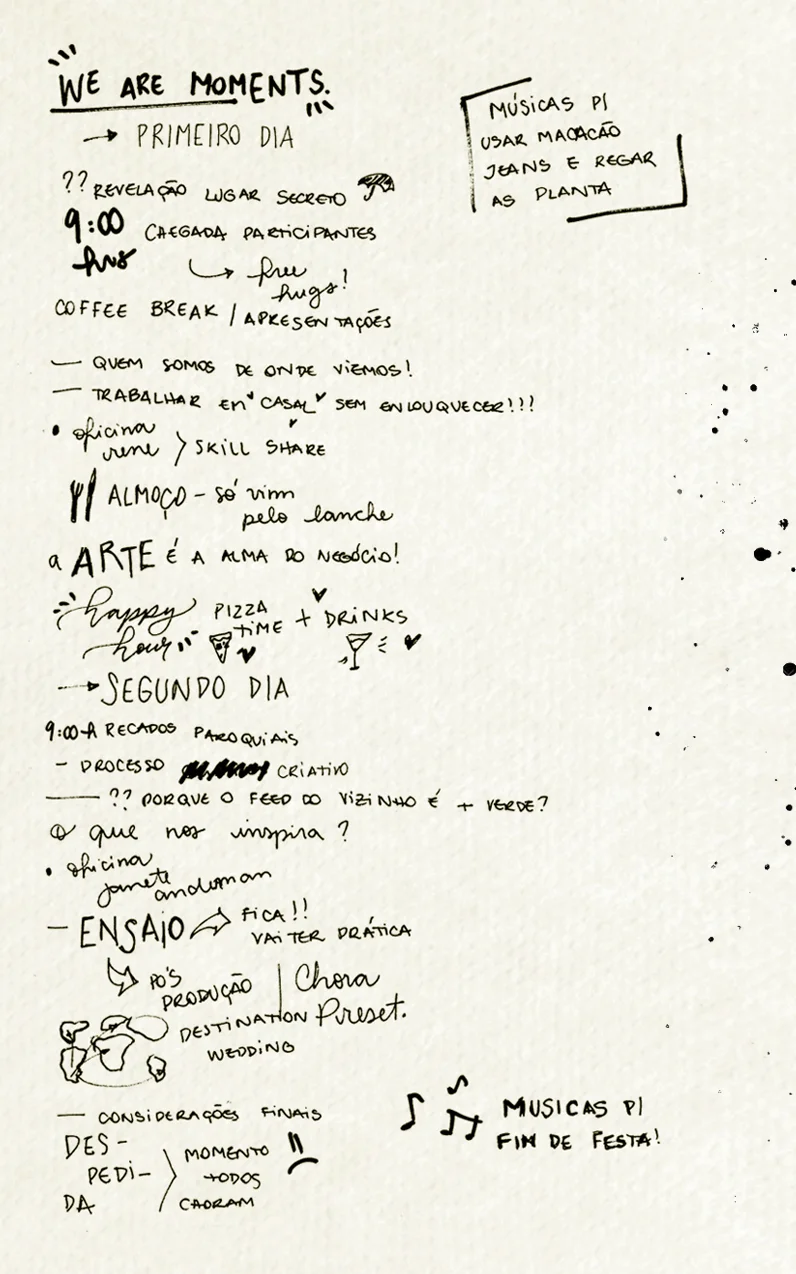 WE ARE MOMENTS.
→ PRIMEIRO DIA
MÚSICAS P/
USAR MACACÃO
JEANS E REGAR
AS PLANTA
?? REVELAÇÃO LUGAR SECRETO
9:00 CHEGADA PARTICIPANTES
hrs
→ free
hugs!
COFFEE BREAK / APRESENTAÇÕES
— QUEM SOMOS DE ONDE VIEMOS!
— TRABALHAR EM CASAL SEM ENLOUQUECER!!!
• oficina
irene > SKILL SHARE
ALMOÇO - só vim
pelo lanche
a ARTE É A ALMA DO NEGÓCIO!
happy PIZZA + DRINKS
hour TIME
→ SEGUNDO DIA
9:00 - RECADOS PAROQUIAIS
- PROCESSO CRIATIVO
— ?? PORQUE O FEED DO VIZINHO É + VERDE?
O que nos inspira?
• oficina
janete
— ENSAIO → FICA!!
VAI TER PRÁTICA
PÓS
PRODUÇÃO | Chora
Preset.
DESTINATION
WEDDING
— CONSIDERAÇÕES FINAIS
DES-
PEDI-
DA
MOMENTO
TODOS
CHORAM
MUSICAS P/
FIM DE FESTA!